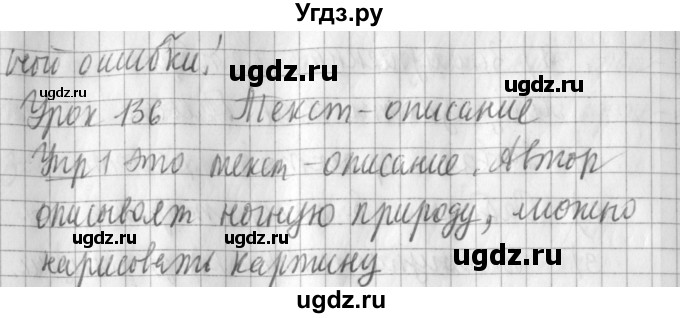 Угдз.ру
ugdz.ru
ной ошибки!
ugdz.ru
ugdz.ru
Урок 136 Текст-описание
ugdz.ru
Упр 1 это текст-описание. Автор
ugdz.ru
описывает ночную природу, можно
ugdz.ru
ugdz.ru
нарисовать картину
ugdz.ru